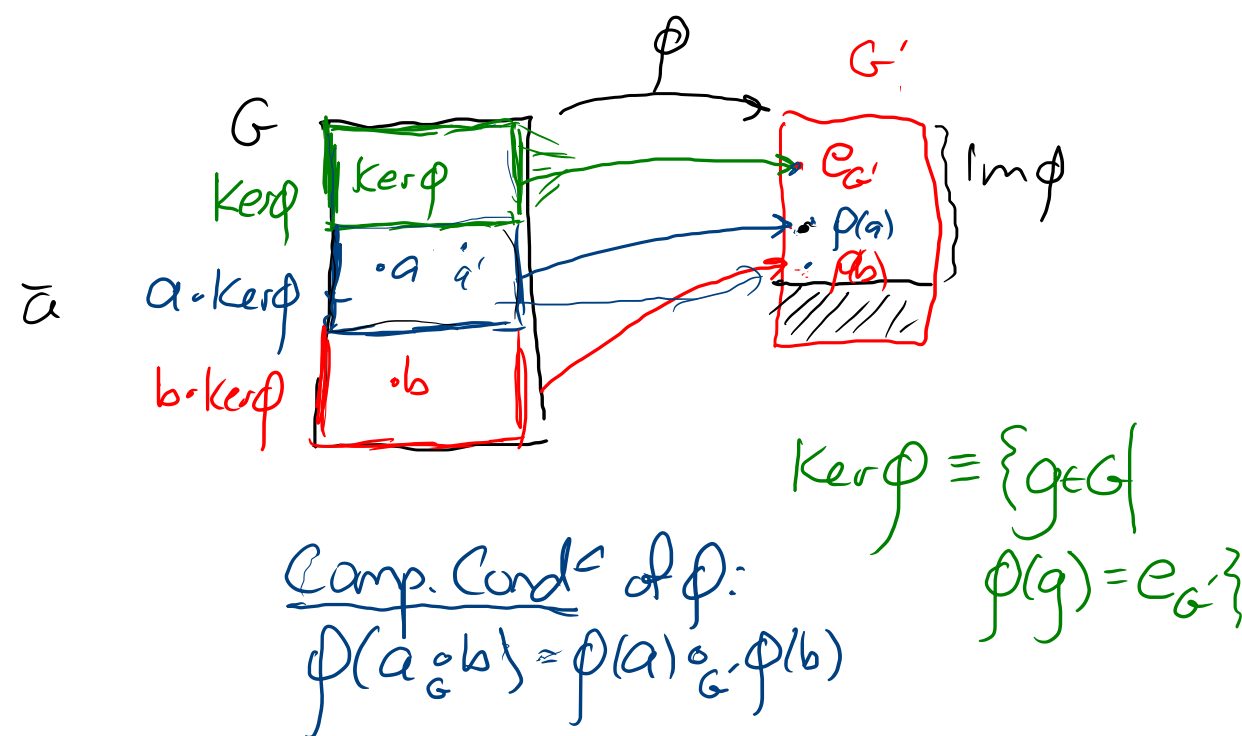 φ
G'
G
kerφ
kerφ
e_G'
Imφ
a∘kerφ
•a a'
φ(a)
ā
b∘kerφ
•b
φ(b)
Kerφ ≡ {g∈G|
φ(g) = e_G'}
Comp. Cond of φ:
φ(a ∘_G b) = φ(a) ∘_G' φ(b)